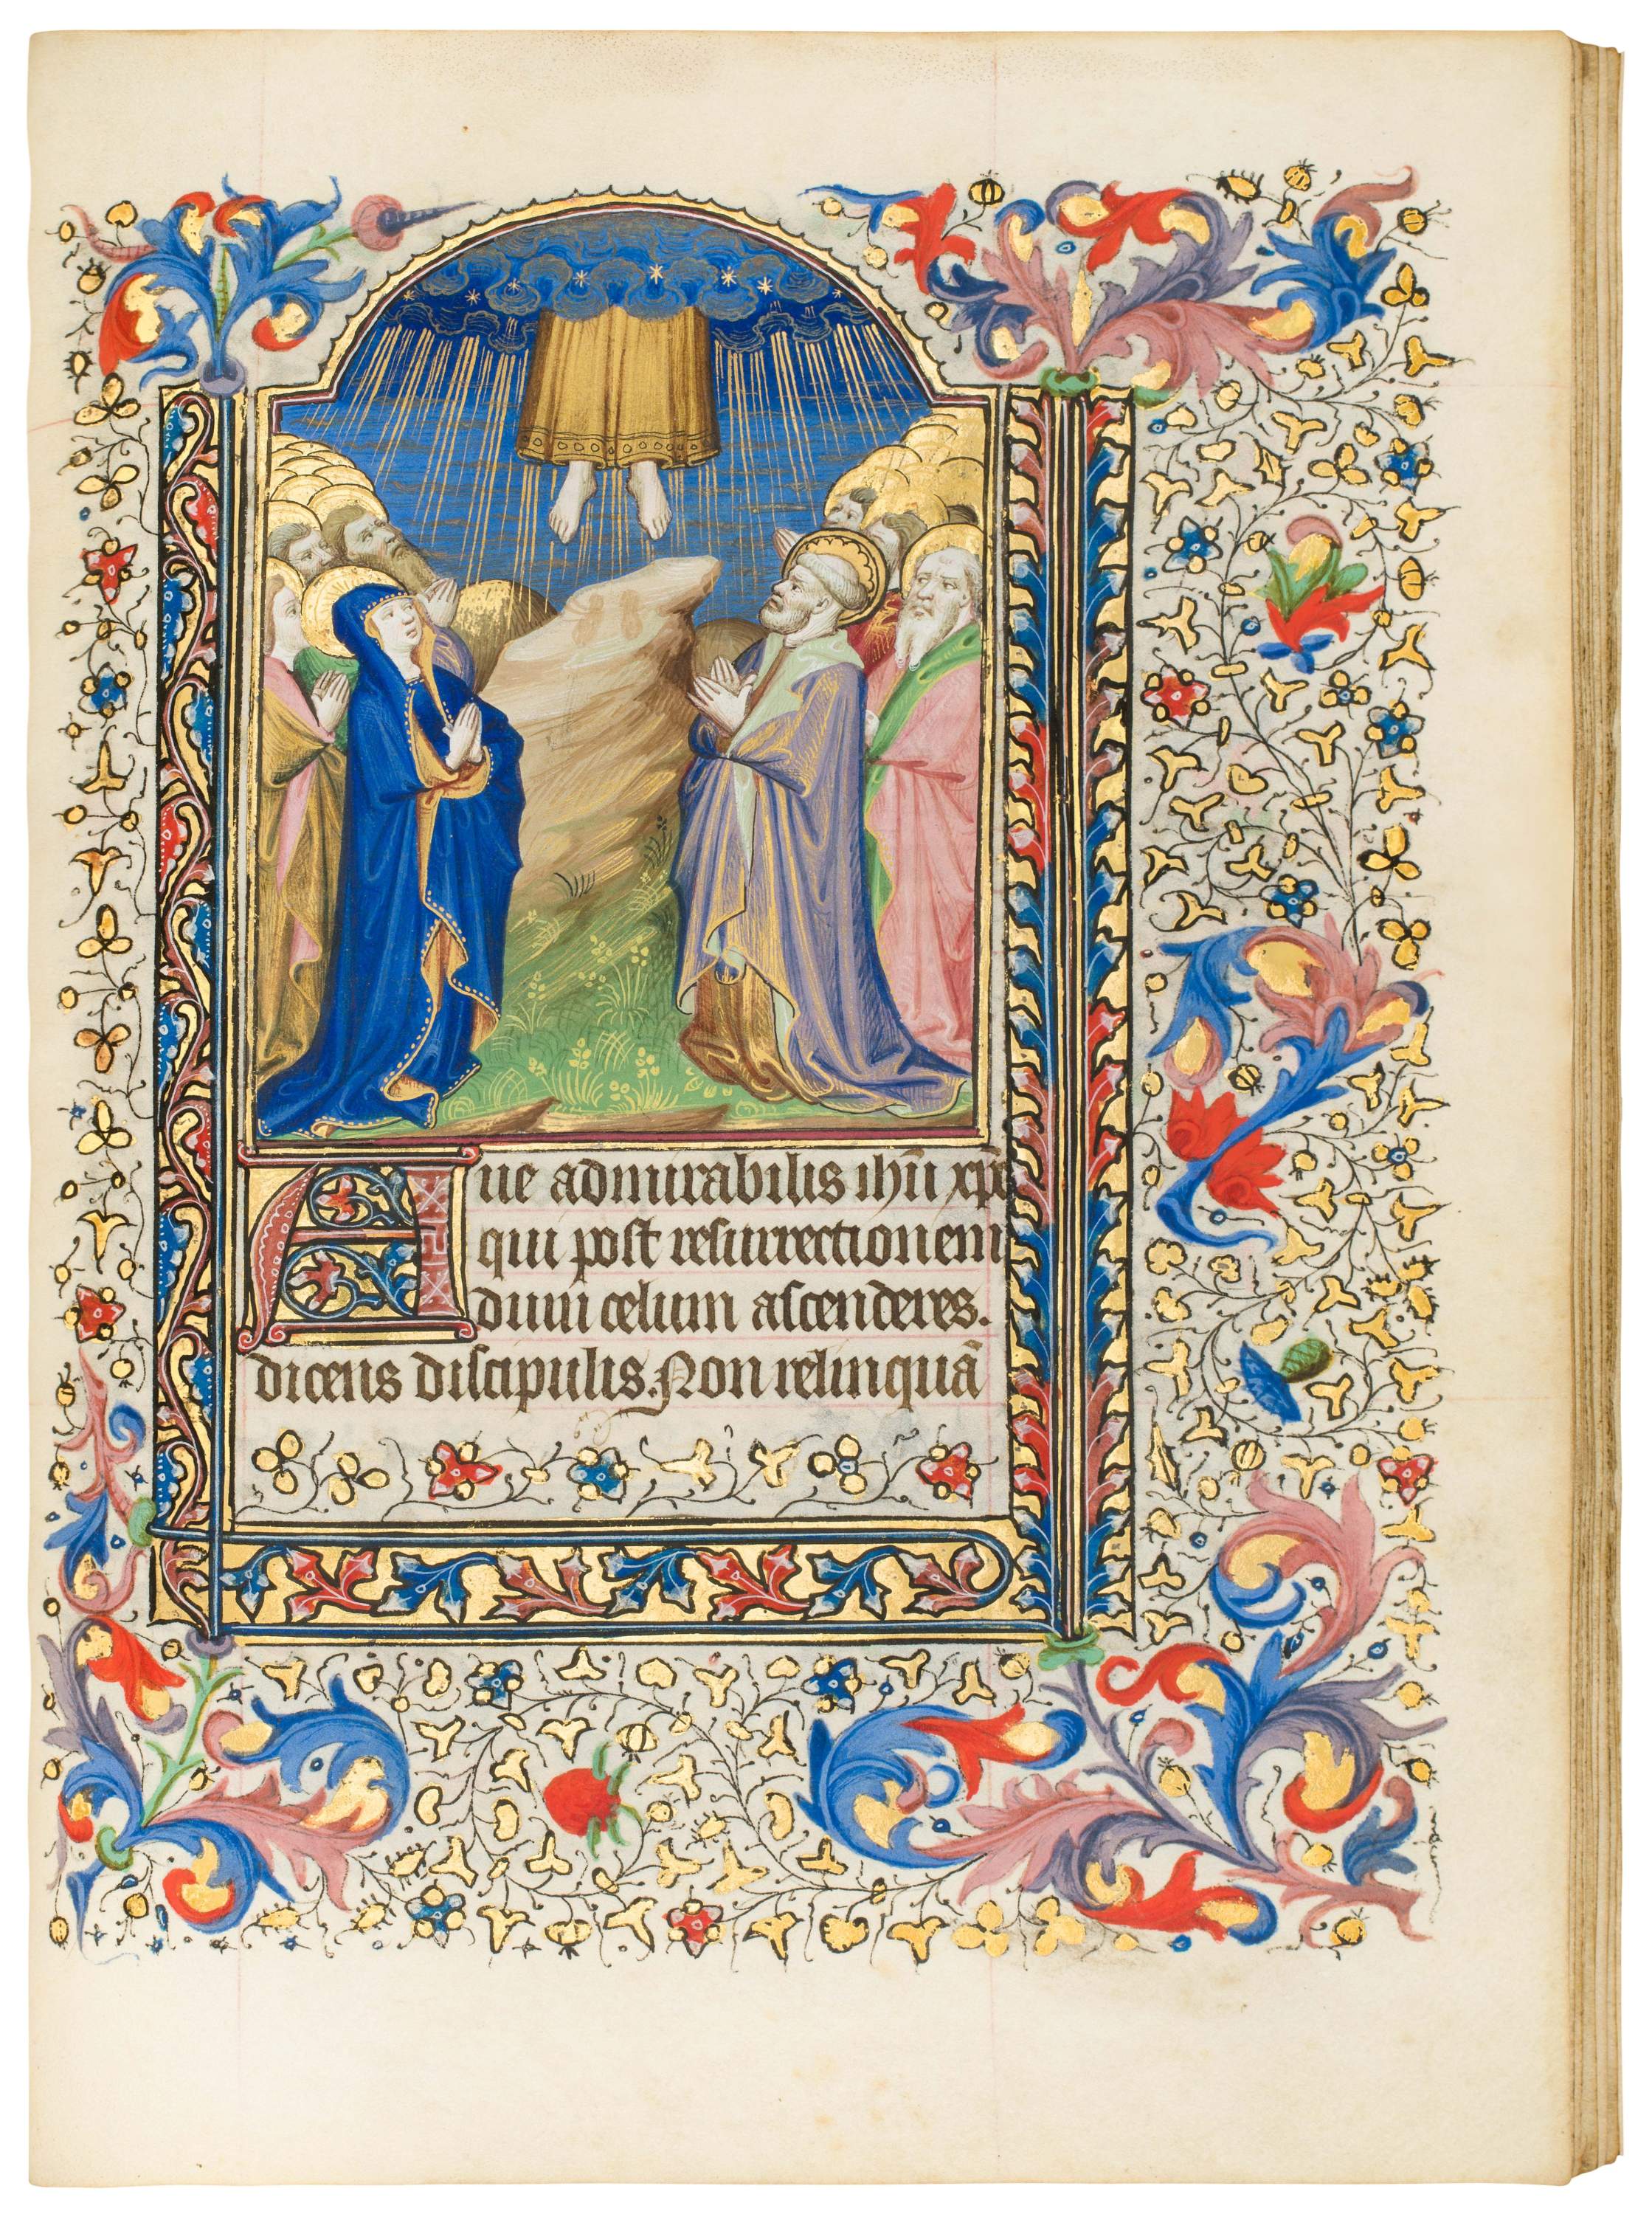 Aue admirabilis ihū xpē
qui post resurrectionem
dum celum ascenderes.
dicens discipulis. Non relinquā